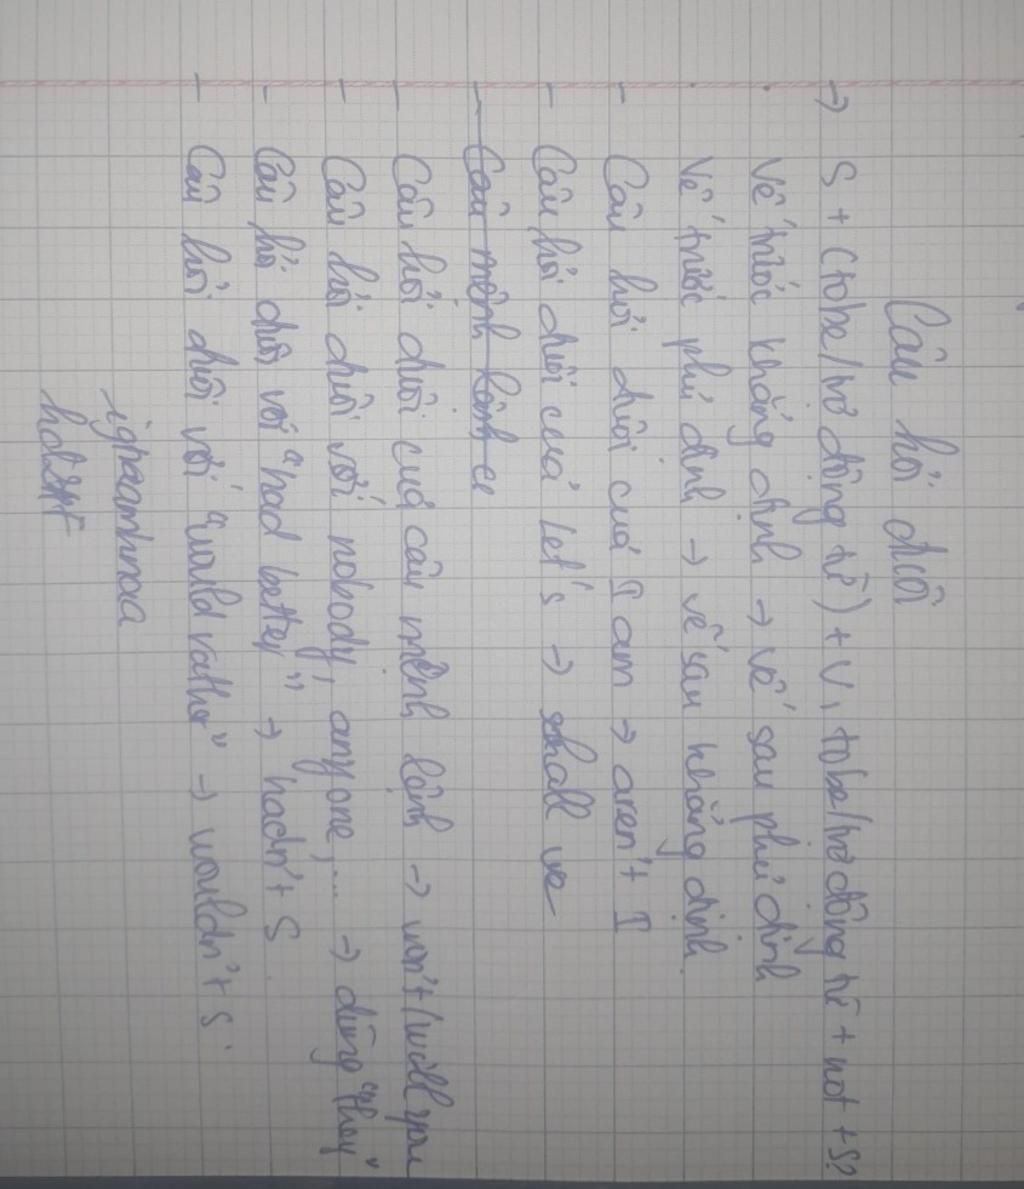 Câu hỏi đuôi
→ S + (tobe/trợ động từ) + V, tobe/trợ động từ + not + S?
· Vế trước khẳng định → vế sau phủ định
· Vế trước phủ định → vế sau khẳng định.
- Câu hỏi đuôi của I am → aren't I
- Câu hỏi đuôi của let's → shall we
- Câu mệnh lệnh c
- Câu hỏi đuôi của câu mệnh lệnh → won't/will you
- Câu hỏi đuôi với nobody, anyone,... → dùng "they"
- Câu hỏi đuôi với "had better" → hadn't S
- Câu hỏi đuôi với "would rather" → wouldn't S.